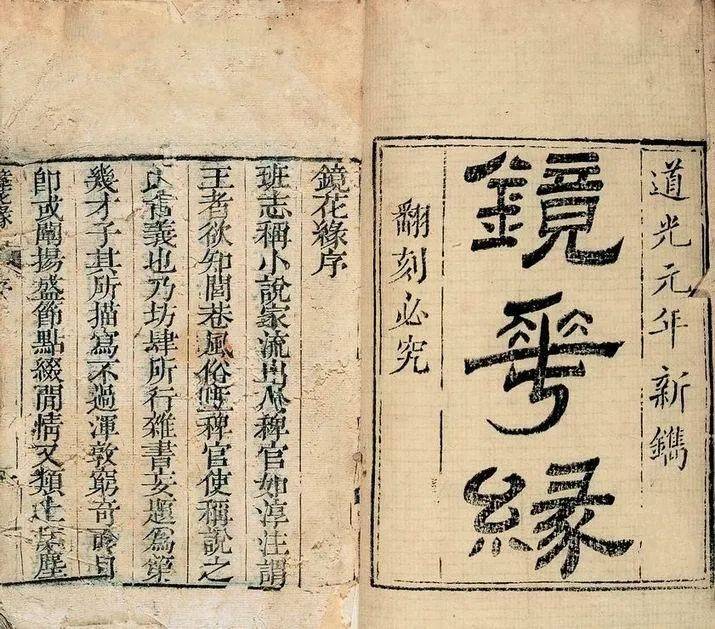 道光元年新鐫
鏡花緣
翻刻必究
鏡花緣序
班志稱小說家流出於稗官如淳注謂
王者欲知閭巷風俗立稗官使稱說之
其舊義也乃坊肆所行雜書妄題為第
幾才子其所描寫不過渾敦窮奇面目
即或闡揚盛節點綴閒情又類土飯塵
鏡花緣
序